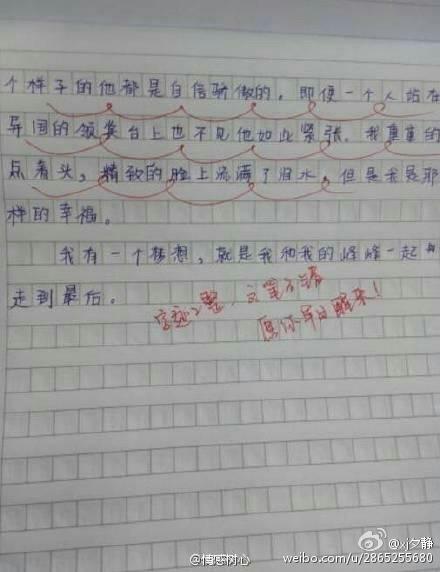 个样子的他都是自信骄傲的，即便一个人站在
异国的领奖台上也不见他如此紧张，我重重的
点着头，精致的脸上流满了泪水，但是我是那
样的幸福。
我有一个梦想，就是我和我的烽烽一起
走到最后。
字迹工整，文笔不错
愿你早日醒来！
@情感树心
@xj夕静
weibo.com/u/2865255680